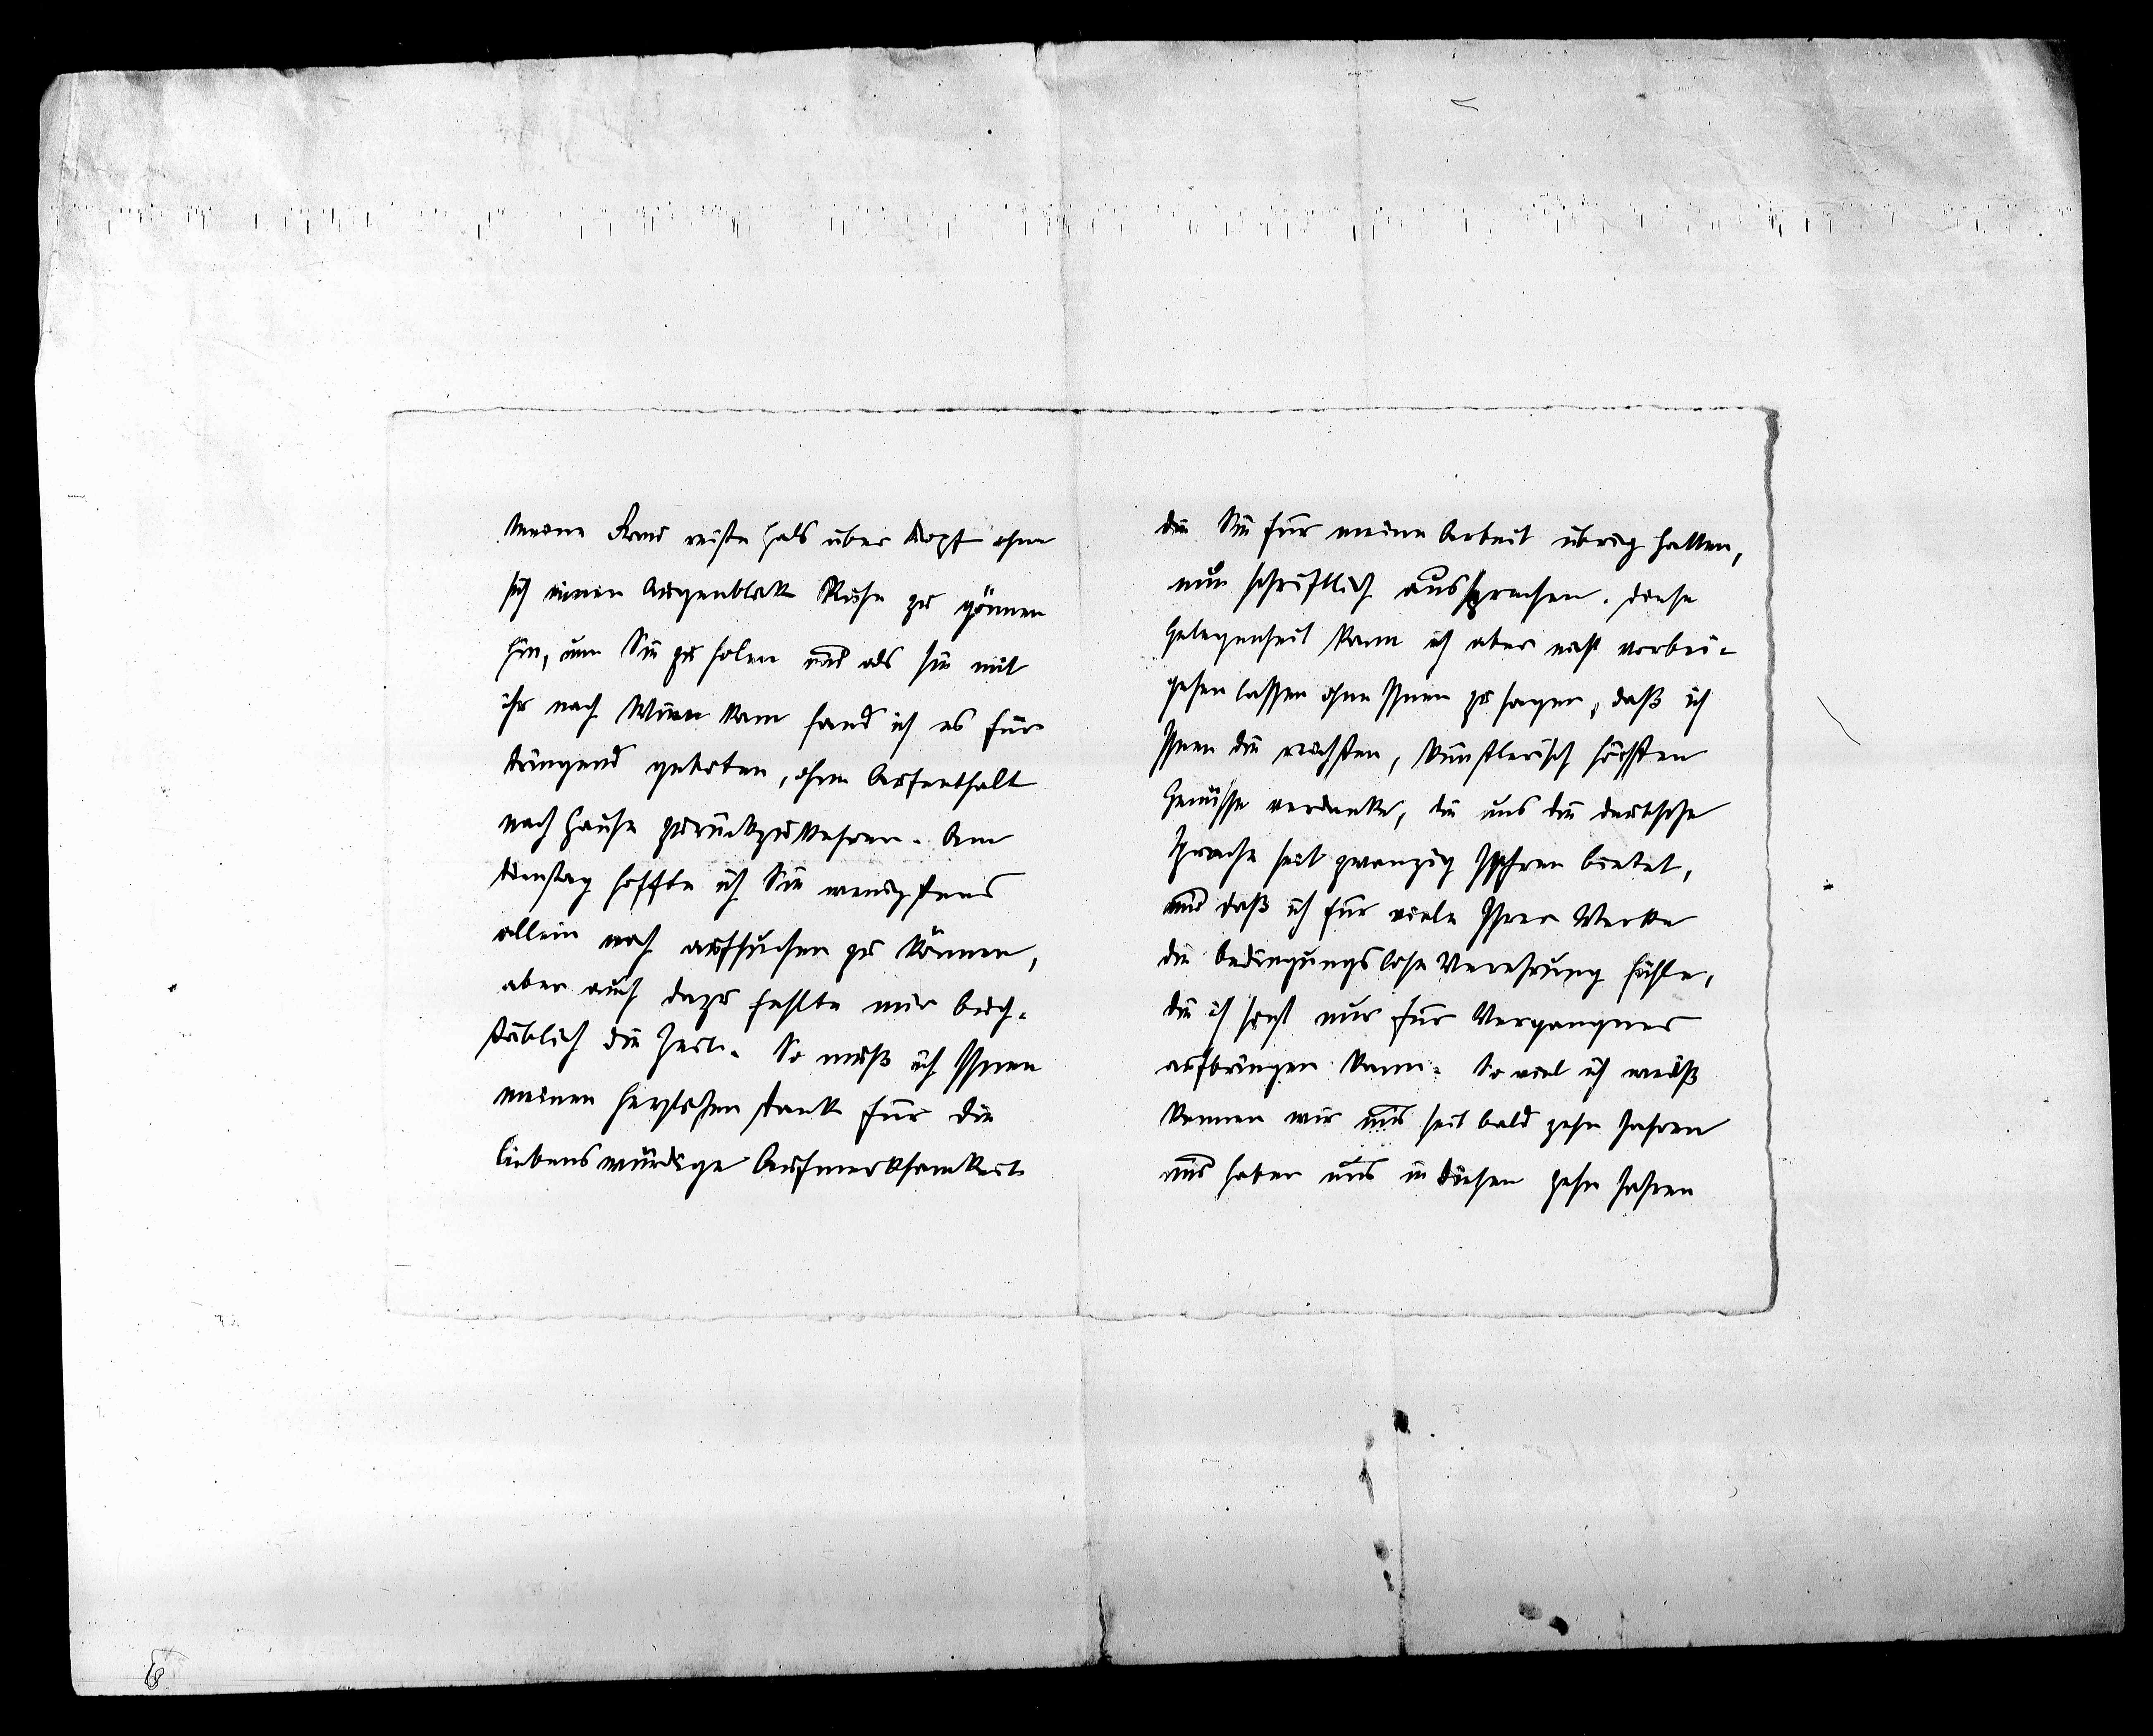 Meine Frau reiste Hals über Kopf ohne
sich einen Augenblick Ruhe zu gönnen
hin, um Sie zu holen und als sie mit
ihr nach Wien kam fand ich es für
dringend geboten, ohne Aufenthalt
nach Hause zurückzukehren. Am
Dienstag hoffte ich Sie wenigstens
allein noch aufsuchen zu können,
aber auch dazu fehlte mir buch-
stäblich die Zeit. So muß ich Ihnen
meinen herzlichen Dank für die
liebenswürdige Aufmerksamkeit
die Sie für meine Arbeit übrig hatten,
nun schriftlich aussprechen. Diese
Gelegenheit kann ich aber nicht vorbei-
gehen lassen ohne Ihnen zu sagen, daß ich
Ihnen die reichsten, künstlerisch höchsten
Genüsse verdanke, die uns die deutsche
Sprache seit zwanzig Jahren bietet,
und daß ich für viele Ihrer Werke
die bedingungslose Verehrung fühle,
die ich sonst nur für Vergangnes
aufbringen kann. So viel ich weiß
kennen wir uns seit bald zehn Jahren
und haben uns in diesen zehn Jahren